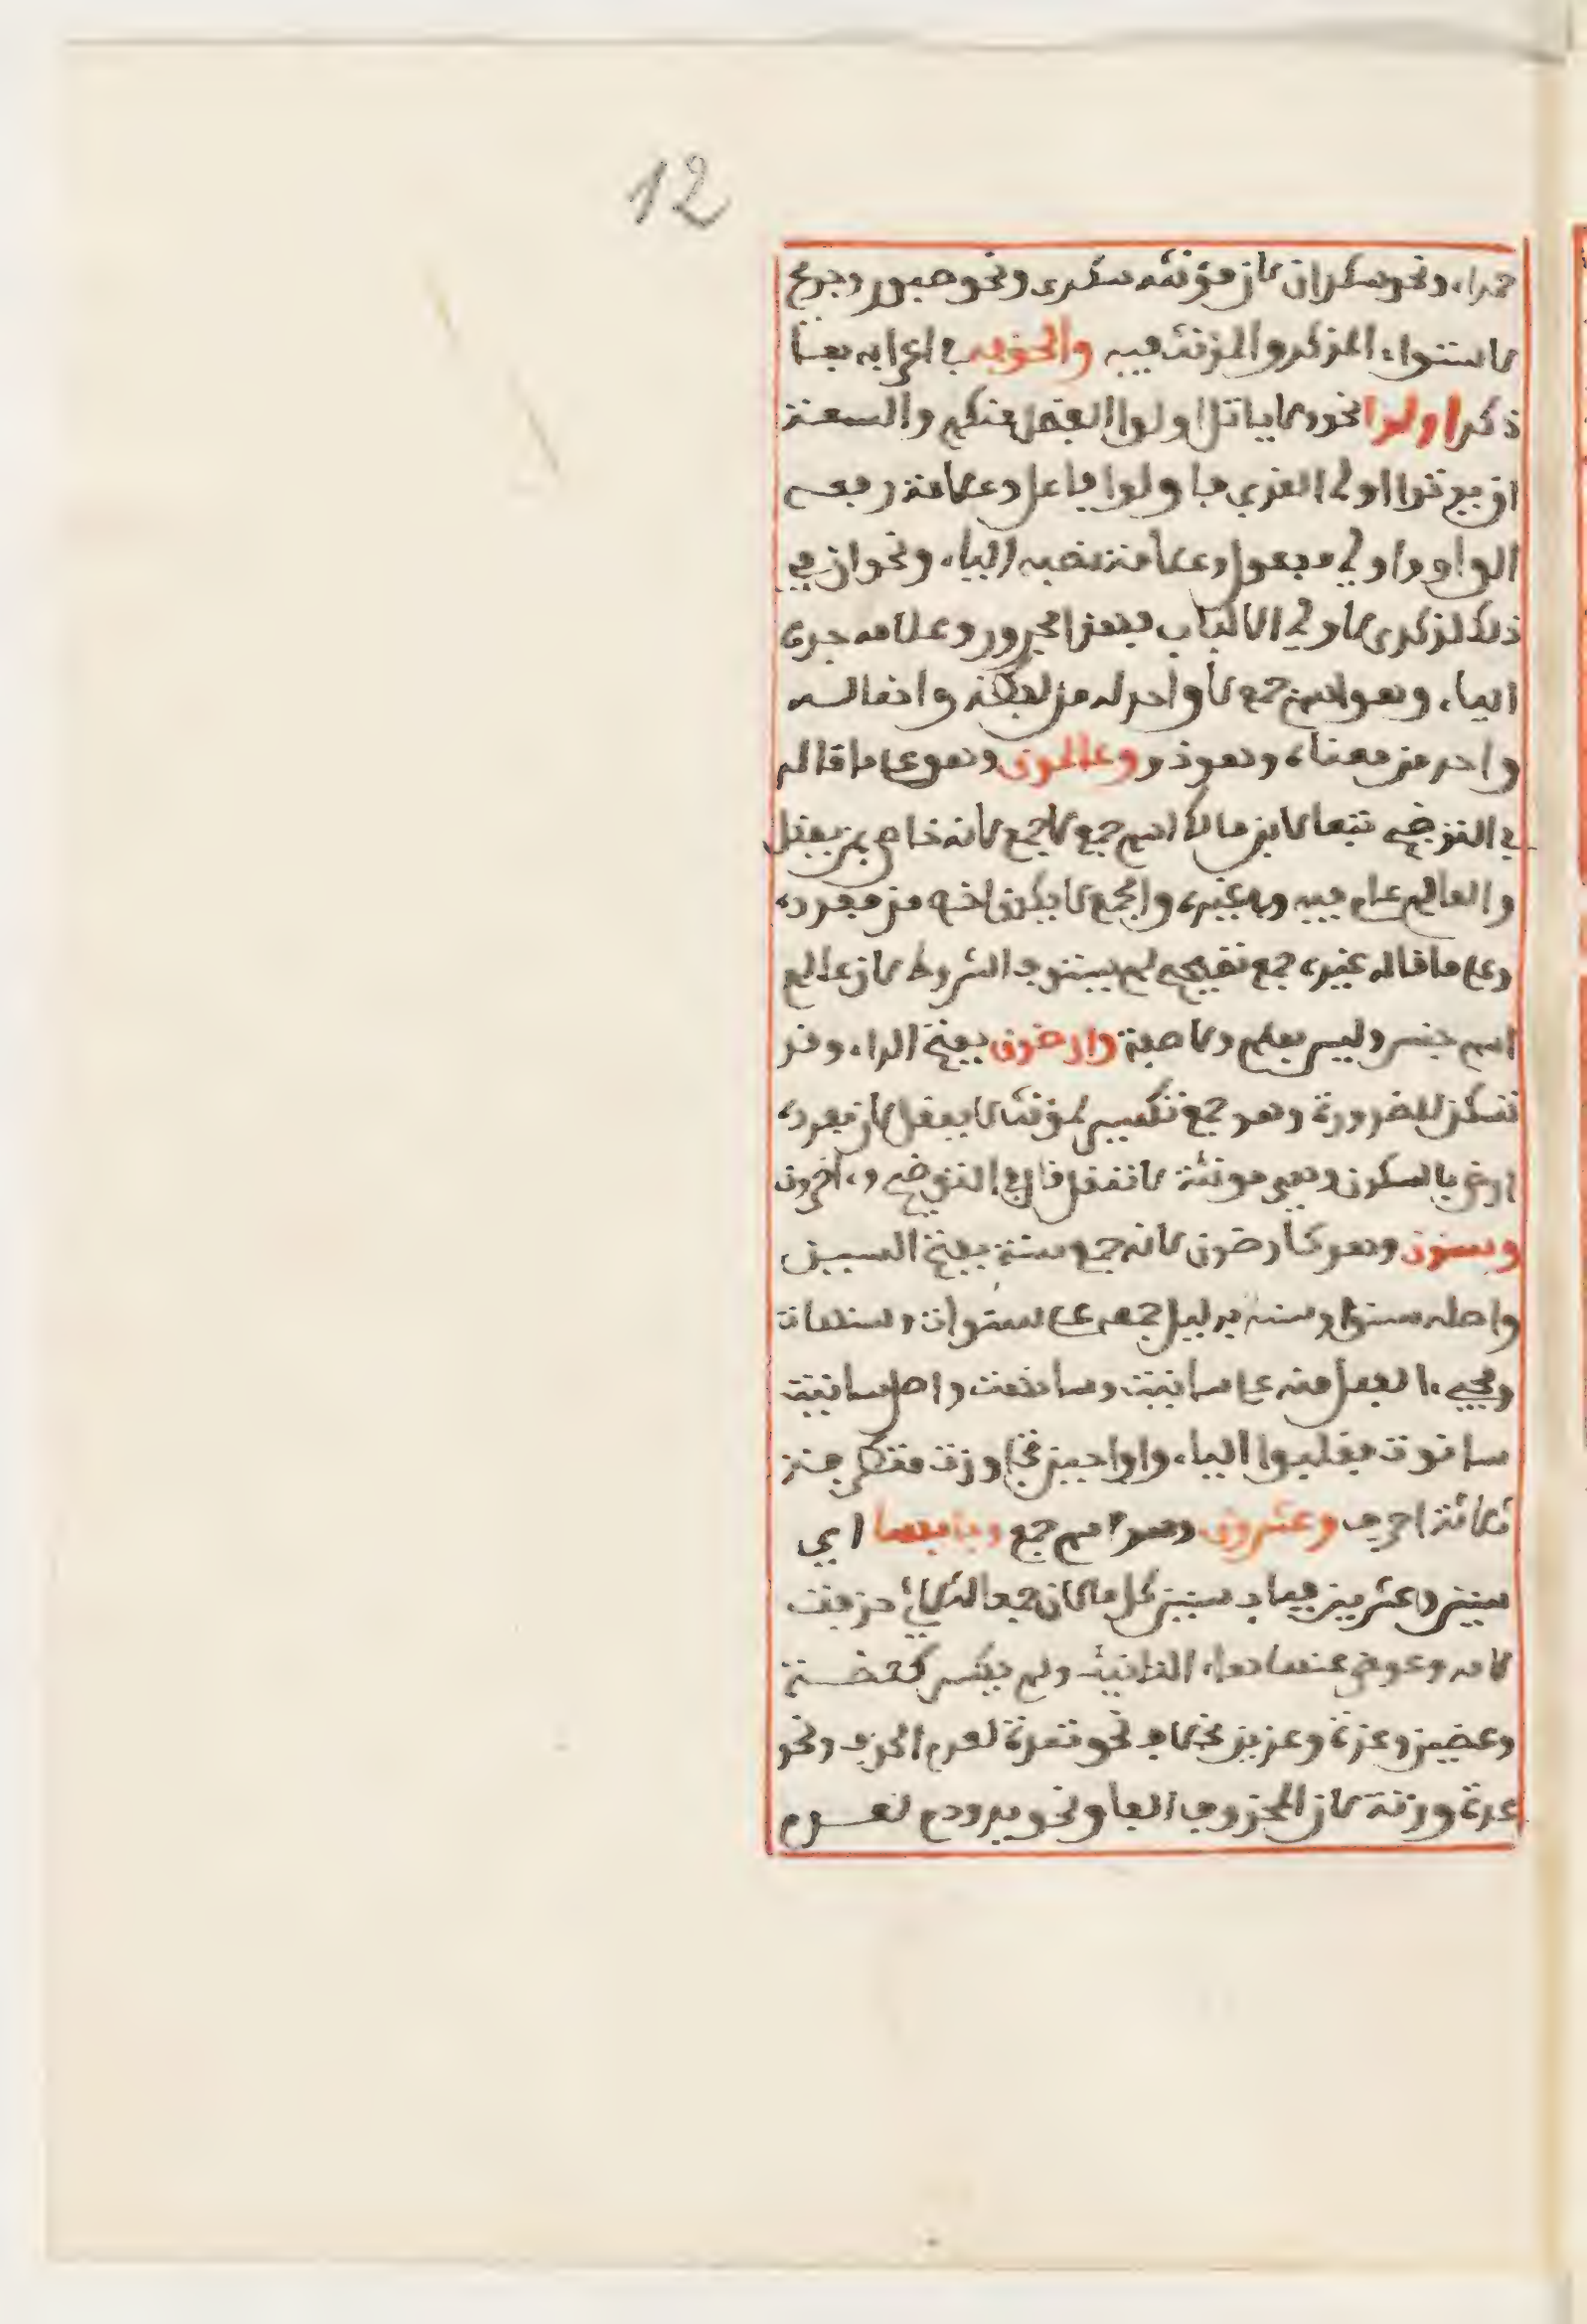 12
حمراء ونحو سكران لان مؤنثه سكرى ونحو صبور وجريح
لاستواء المذكر والمؤنث فيه والحق به في اعرابه بها
ذكر اولوا نحو ولا ياتل اولوا الفضل منكم والسعة
ان يوتوا اولي القربى فاولوا فاعل وعلامة رفعه
الواو واولي مفعول وعلامة نصبه الياء ونحو ان في
ذلك لذكرى لاولي الالباب فهذا مجرور وعلامه جره
الياء وهو اسم جمع لا واحد له من لفظه وانما له
واحد من معناه وهو ذو وعالمون وهو على ما قاله
في التوضيح تبعا لابن مالك اسم جمع لا جمع لانه خاص بمن يعقل
والعالم عام فيه وفي غيره والجمع لا يكون اخص من مفرده
وعلى ما قاله غيره جمع تصحيح لم يستوف الشروط لان عالم
اسم جنس وليس بعلم ولا صفة وارضون بفتح الراء وقد
تسكن للضرورة وهو جمع تكسير لمؤنث لا يعقل لان مفرده
ارض بالسكون وهي مونثة لا تعقل قال في التوضيح
وسنون وهو كارضون لانه جمع سنة بفتح السين
واصله سنو او سنه بدليل جمعه على سنوات وسنهات
ومجيء الفعل منه على سانيت وسانهت واصل سانيت
سانوت فقلبوا الواو ياء حين تجاوزت متطرفة
ثلاثة احرف وعشرون وهو اسم جمع وبابهما اي
سنين وعشرين فباب سنين كل ما كان جمعا لثلاثي حذفت
لامه وعوض عنها هاء التانيث ولم يكسر كعضة
وعضين وعزة وعزين بخلاف نحو تمرة لعدم الحذف ونحو
عدة وزنة لان المحذوف الفا ونحو يد ودم لعدم